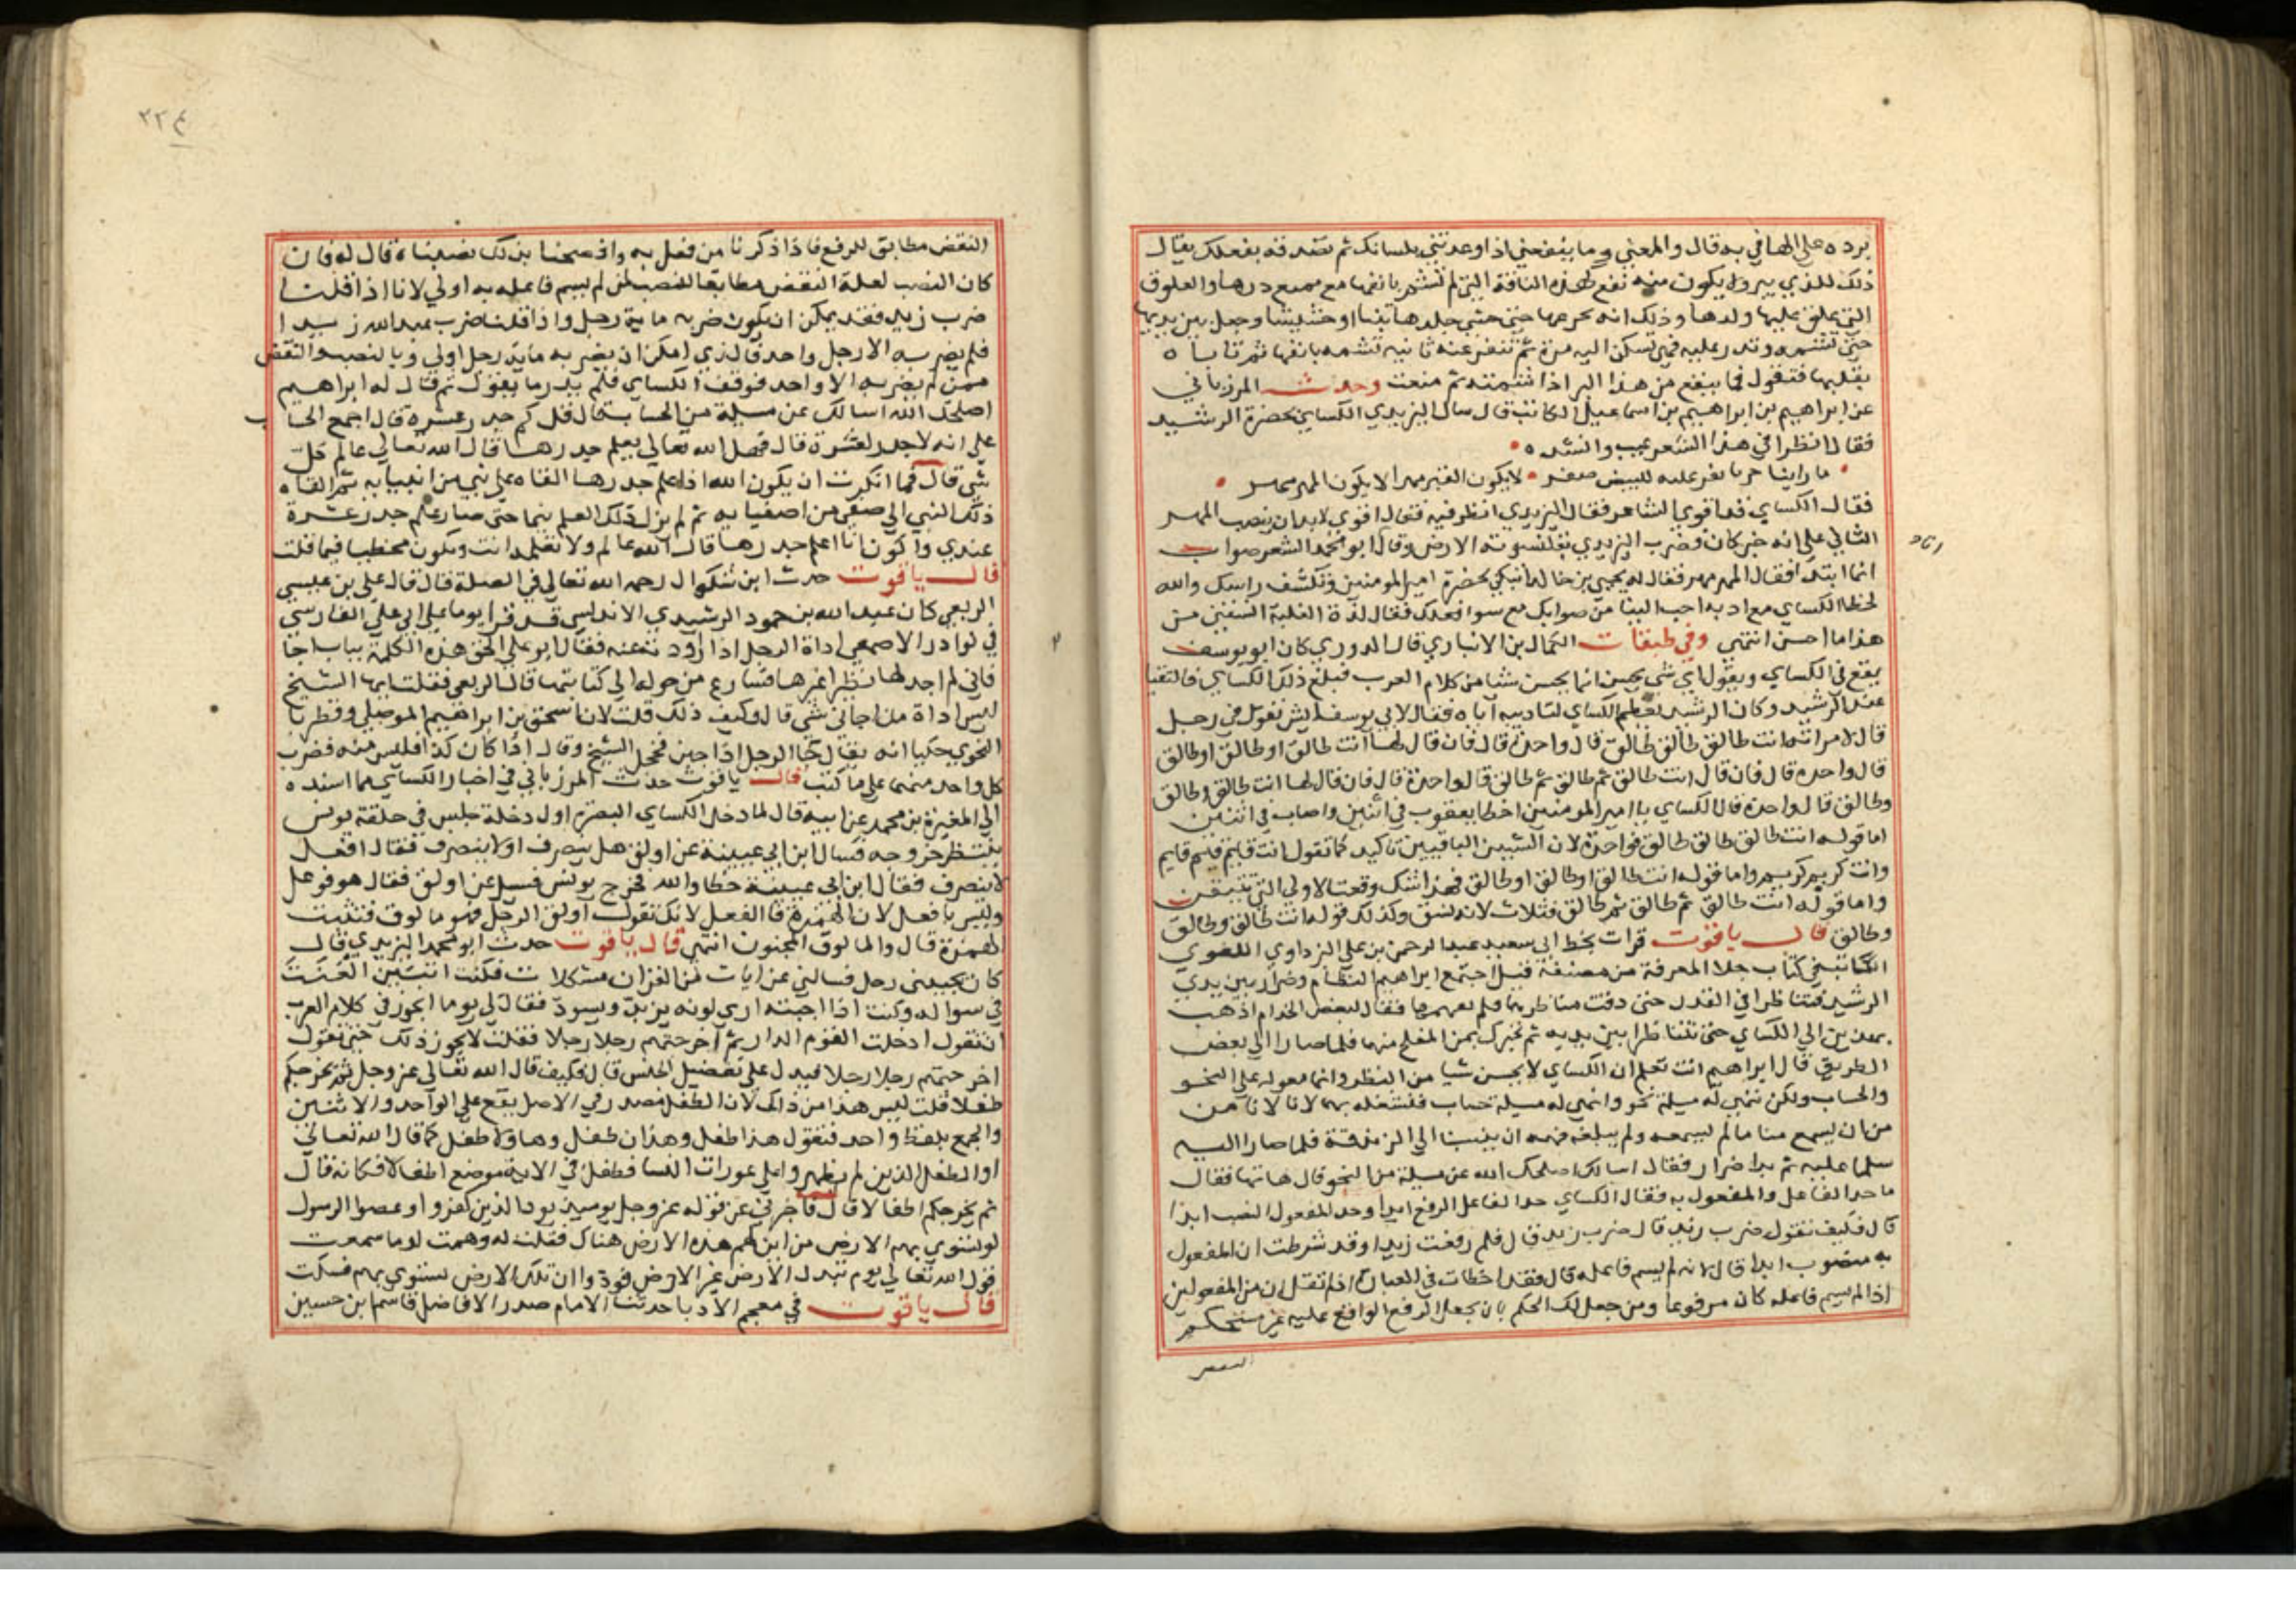 يرده على الهافي به قال والمعني وما ينفعني اذا وعدتني بلسانك ثم تصدقه بفعلك يقال
ذلك للذي يبر ولا يكون منه نفع كهذه الناقة التي لم تشم بانفها مع منع درها والعلوق
التي علق عليها ولدها وذلك انه نحر عنها حتى حشى جلدها تبنا او حشيشا وجعل بين يديها
حتى تشمه وتدر عليه فهي تسكن اليه مرة ثم تنفر عنه ثانية تشمه بانفها ثم تاباه
بقلبها فتقول فما ينفع من هذا البر اذا تشمته ثم منعت وحدث المرزباني
عن ابراهيم بن ابراهيم بن اسماعيل الكاتب قال سال اليزيدي الكساي بحضرة الرشيد
فقال انظر افي هذا الشعر عيب وانشده
ما راينا خربا نقر عنه البيض صقر لا يكون العير مهرا لا يكون المهر مهر
فقال الكساي قد اقوي الشاعر فقال اليزيدي انظر فيه فقال اقوي لابد ان ينصب المهر
الثاني على انه خبر كان فضرب اليزيدي بقلنسوته الارض وقال انا ابو محمد الشعر صواب
انما ابتدا فقال المهر مهر فقال له يحيي بن خالد اتكني بحضرة امير المومنين وتكشف راسك والله
لخطا الكساي مع ادبه احب الينا من صوابك مع سوا فعلك فقال لذة الغلبة انستني من
هذا ما احسن انتهي وفي طبقات الكمال بن الانباري قال الدوري كان ابو يوسف
يقع في الكساي ويقول اي شي يحسن انما يحسن شيا من كلام العرب فبلغ ذلك الكساي فالتقيا
عند الرشيد وكان الرشيد يعظم الكساي لتاديبه اياه فقال لابي يوسف ايش تقول في رجل
قال لامراته انت طالق طالق طالق قال واحدة قال فان قال لها انت طالق او طالق او طالق
قال واحدة قال فان قال انت طالق ثم طالق ثم طالق قال واحدة قال فان قال لها انت طالق وطالق
وطالق قال واحدة قال الكساي يا امير المومنين اخطا يعقوب في اثنين واصاب في اثنتين
اما قوله انت طالق طالق طالق فواحدة لان الثنتين الباقيتين تاكيد كما تقول انت قايم قايم قايم
وانت كريم كريم كريم واما قوله انت طالق او طالق او طالق فهذا شك وقعت الاولي التي تتيقن
واما قوله انت طالق ثم طالق ثم طالق فثلاث لانه نسق وكذلك قوله انت طالق وطالق
وطالق قال ياقوت قرات بخط ابي سعيد عبد الرحمن بن علي اليزداوي اللغوي
الكاتب في كتاب جلا المعرفة من مصنفه قيل اجتمع ابراهيم النظام وضرار بين يدي
الرشيد فتناظرا في القدر حتى دقت مناظرتهما فلم يفهمها فقال لبعض الخدام اذهب
بهذين الي الكساي حتى يتناظرا بين يديه ثم يخبرك بمن المفلح منهما فلما صارا الي بعض
الطريق قال ابراهيم انت تعلم ان الكساي لا يحسن شيا من النظر وانما معوله على النحو
والحساب ولكن تهيي له مسيلة نحو واهيي له مسيلة حساب فنشغله بهما لانا لا نامن
من ان يسمع منا ما لم يسمعه ولم يبلغه فهمه ان ينسبنا الي الزندقة فلما صارا اليه
سلما عليه ثم بدا ضرار فقال اسالك اصلحك الله عن مسيلة من النحو قال هاتها فقال
ما حد الفاعل والمفعول به فقال الكساي حد الفاعل الرفع ابدا وحد المفعول النصب ابدا
قال فكيف تقول ضرب زيد قال ضرب زيد قال فلم رفعت زيدا وقد شرطت ان المفعول
به منصوب ابدا قال لانه لم يسم فاعله قال فقد اخطات في العبارة اذ لم تقل ان من المفعولين
اذا لم يسم فاعله كان مرفوعا ومن جعل لك الحكم بان يجعل الرفع الواقع عليه غير مستحكم
النقض
النقض مطابق للرفع فاذا ذكرنا من فعل به واذ صحنا بذلك نصبناه قال له فان
كان النصب لعلة النقض مطابقا للنصب لمن لم يسم فاعله به اولي لانا اذا قلنا
ضرب زيد فقد يمكن ان يكون ضربه ماية رجل واذا قلنا ضرب عبد الله زيدا
فلم يضربه الا رجل واحد فالذي امكن ان يضربه ماية رجل اولي وبالنصب والنقض
ممن لم يضربه الا واحد فوقف الكساي فلم يدر ما يقول ثم قال له ابراهيم
اصلحك الله اسالك عن مسيلة من الحساب قال قل كم جدر عشرة قال اجمع الحساب
على انه لا جدر لعشرة قال فهل الله تعالي يعلم جدرها قال الله تعالي عالم كل
شي قال فما انكرت ان يكون الله اذا علم جدرها القاه على نبي من انبيايه ثم القاه
ذلك النبي الي صفي من اصفيايه ثم لم يزل ذلك العلم ينما حتى صار علم جدر عشرة
عندي واكون انا اعلم جدرها قال الله عالم ولا تعلمه انت وتكون مخطيا فيما قلت
قال ياقوت حدث ابن بشكوال رحمه الله تعالي في الصلة قال قال على بن عيسي
الربعي كان عبد الله بن حمود الرشيدي الاندلسي قد قرا يوما على ابي علي الفارسي
في نوادر الاصمعي اداة الرجل اذا اردد تنعنه فقال ابو علي الحق هذه الكلمة بباب اجا
فاني لم اجد لها نظيرا غيرها فتسارع من حوله الي كتابتها قال الربعي فقلت ايها الشيخ
ليس اداة من اجا في شي قال وكيف ذلك قلت لان اسحق بن ابراهيم الموصلي وقطربا
النحوي حكيا انه يقال كا الرجل اذا جبن فخجل الشيخ وقال اذا كان كذا فليس منه فضرب
كل واحد منهما على ما كتب قال ياقوت حدث المرزباني في اخبار الكساي مما اسنده
الي المغيرة بن محمد عن ابيه قال لما دخل الكساي البصرة اول دخلة جلس في حلقة يونس
ينتظر خروجه فسال ابن ابي عيينة عن اولق هل ينصرف او لا ينصرف فقال افعل
لا ينصرف فقال ابن ابي عيينة خطا والله فخرج يونس فسيل عن اولق فقال هو فوعل
وليس بافعل لان الهمزة فا الفعل لانك تقول اولق الرجل فهو مالوق فتثبت
الهمزة قال والمالوق المجنون انتهي قال ياقوت حدث ابو محمد اليزيدي قال
كان يجيني رجل فسالني عن ايات من القران مشكلات فكنت اتبين العنت
في سواله وكنت اذا اجبته اري لونه يزبد ويسود فقال لي يوما ايجوز في كلام العرب
ان تقول ادخلت القوم الدار ثم اخرجتهم رجلا رجلا فقلت لا يجوز ذلك حتى تقول
اخرجتهم رجلا رجلا فيدل على تفضيل الجنس قال فكيف قال الله تعالي عز وجل ثم نخرجكم
طفلا قلت ليس هذا من ذاك لان الطفل مصدر في الاصل يقع علي الواحد والاثنين
والجمع بلفظ واحد فتقول هذا طفل وهذان طفل وهاولا طفل كما قال الله تعالي
او الطفل الذين لم يظهروا على عورات النسا فطفل في الاية موضع اطفالا فكانه قال
ثم يخرجكم اطفالا قال فاخبرني عن قوله عز وجل يوميذ يود الذين كفروا وعصوا الرسول
لو تسوي بهم الارض من اين لهم هذه الارض هناك فقلت له وهمت لو ما سمعت
قول الله تعالي يوم تبدل الارض غير الارض فودوا ان تلك الارض تستوي بهم فسكت
قال ياقوت في معجم الادبا حدثنا الامام صدر الافاضل قاسم ابن حسين
٢٢٤